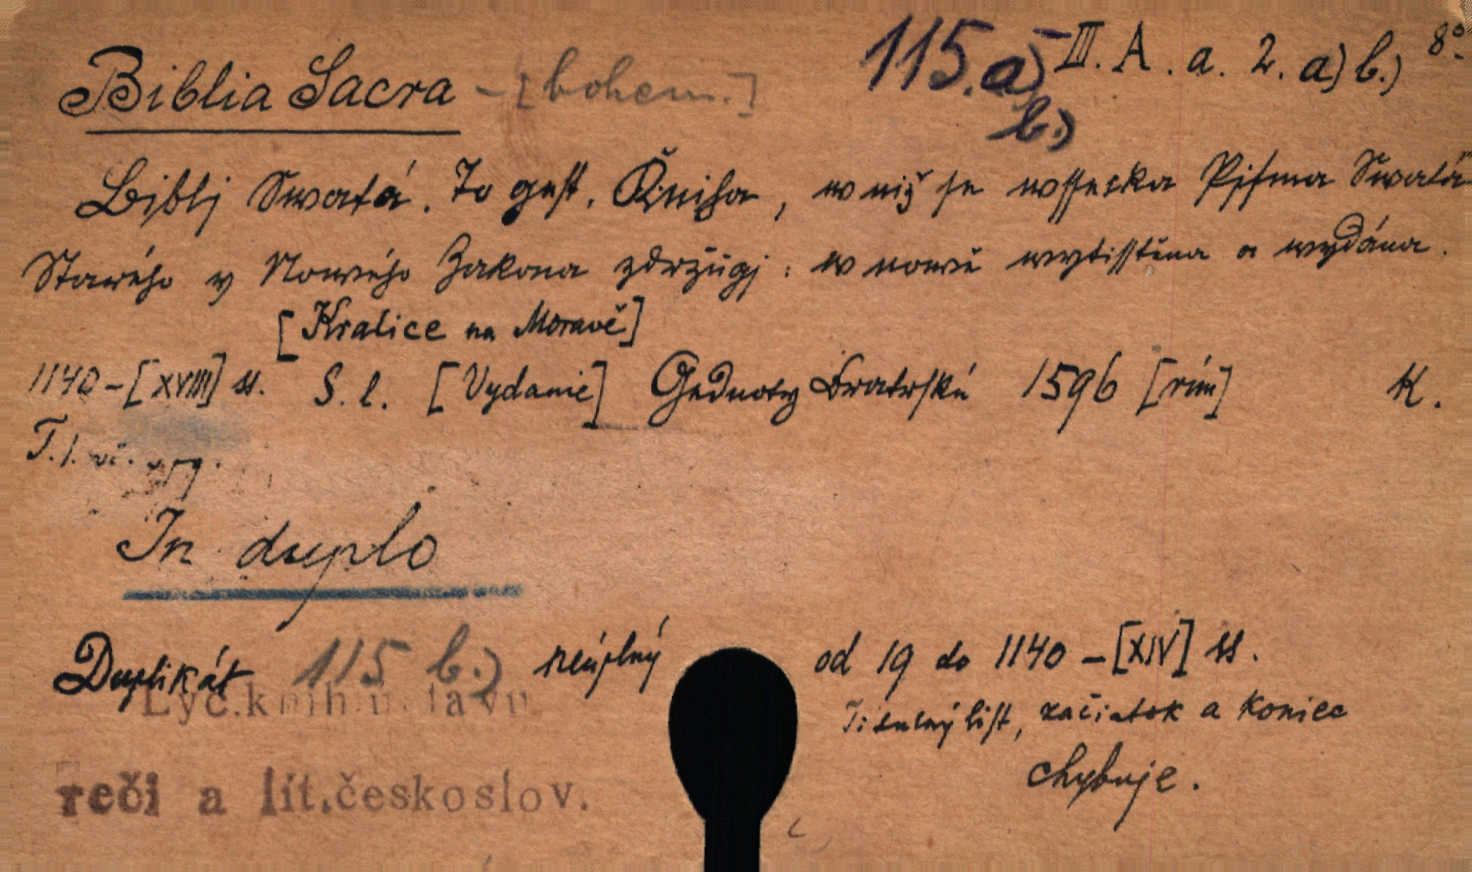 Biblia Sacra - [bohem.] 115.a) III. A. a. 2. a) b.) 8°
b.)
Biblj Swatá. To gest. Kniha, w niž se wssecka Pjsma Swatá
Starého y Nowého Zakona zdržugj: w nowě wytisstěna a wydána.
[Kralice na Moravě]
1140-[XVIII] ss. S. l. [Vydanie] Gednoty Bratrské 1596 [rím] K.
T. l.
In duplo
Duplikát 115 b.) neúplný od 19 do 1140-[XIV] ss.
Titulný list, začiatok a koniec
chybuje.
Lyc.knih
reči a lit.českoslov.